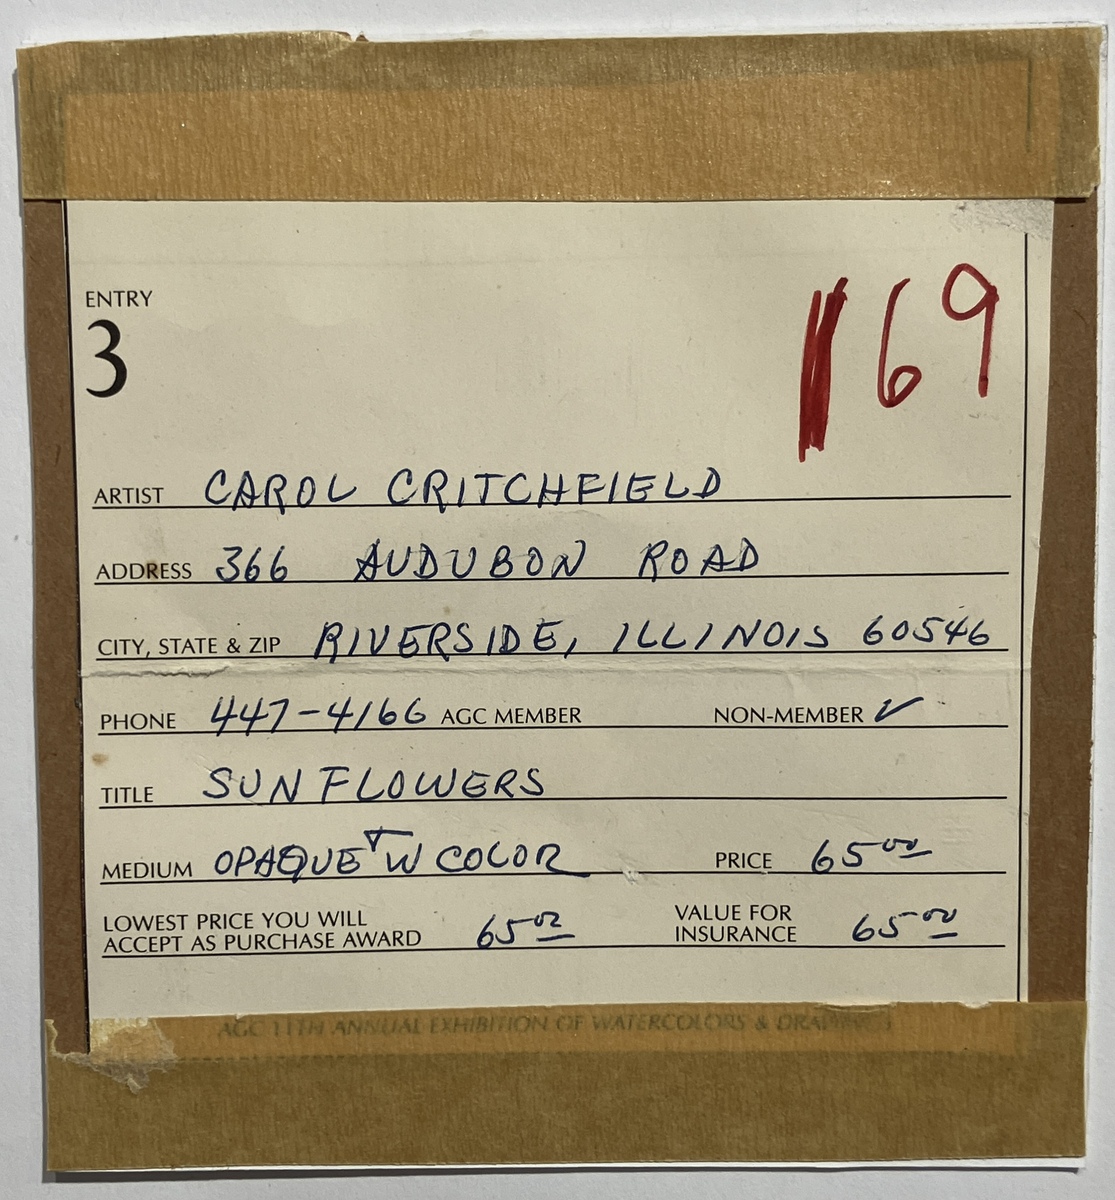 ENTRY
3
69
ARTIST CAROL CRITCHFIELD
ADDRESS 366 AUDUBON ROAD
CITY, STATE & ZIP RIVERSIDE, ILLINOIS 60546
PHONE 447-4166 AGC MEMBER NON-MEMBER ✓
TITLE SUNFLOWERS
MEDIUM OPAQUE W COLOR PRICE 65 00
LOWEST PRICE YOU WILL
ACCEPT AS PURCHASE AWARD 65 00
VALUE FOR
INSURANCE 65 00
AGC 11TH ANNUAL EXHIBITION OF WATERCOLORS & DRAWINGS